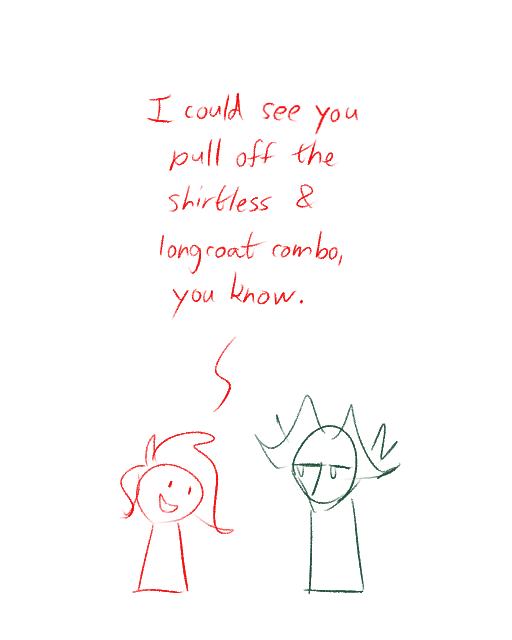 I could see you
pull off the
shirtless &
longcoat combo,
you know.